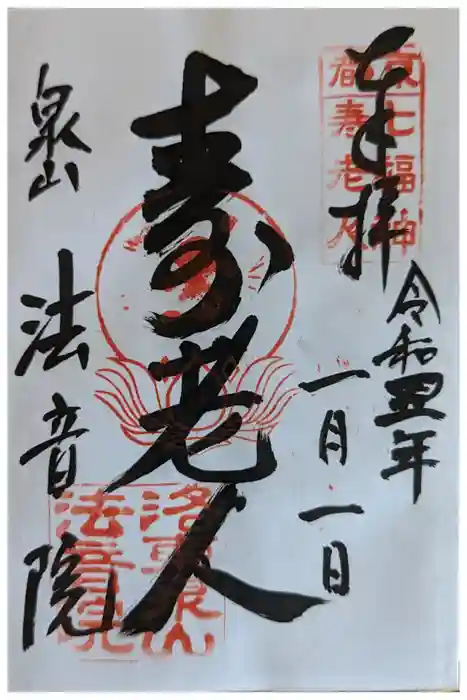 奉拝
京七福神
都寿老人
令和四年
一月一日
寿老人
泉山
法音院
洛東泉山
法音院